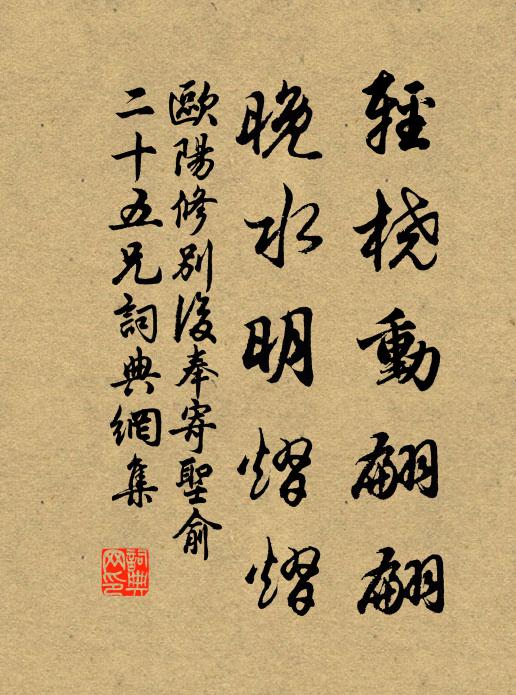 輕桡動翩翩
晚水明熠熠
歐陽修別後奉寄聖俞
二十五兄詞典網集
詞典
网印